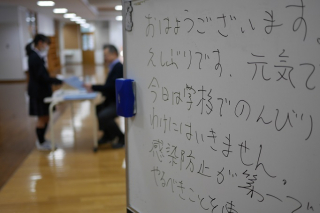 おはようございます。
えしぶりです。元気で
今日は学校でのんびり
わけにはいきません。
感染防止が第一で
やるべきことを